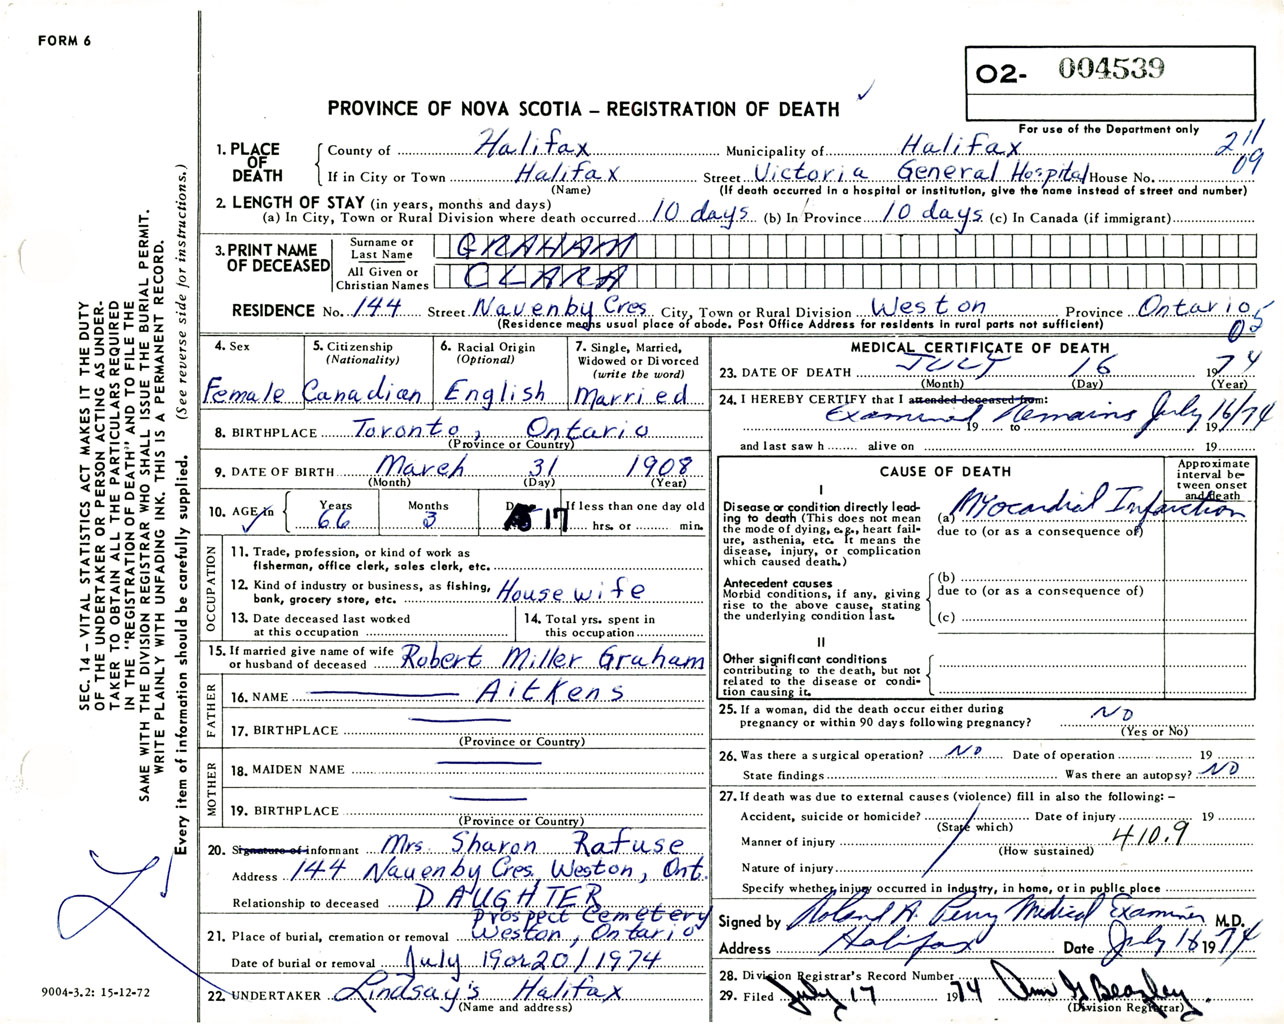 FORM 6
O2- 004539
PROVINCE OF NOVA SCOTIA – REGISTRATION OF DEATH
For use of the Department only
211
09
1. PLACE OF DEATH
County of Halifax Municipality of Halifax
If in City or Town Halifax Street Victoria General Hospital House No.
(Name) (If death occurred in a hospital or institution, give the name instead of street and number)
2. LENGTH OF STAY (in years, months and days)
(a) In City, Town or Rural Division where death occurred 10 days (b) In Province 10 days (c) In Canada (if immigrant)
3. PRINT NAME OF DECEASED
Surname or Last Name GRAHAM
All Given or Christian Names CLARA
RESIDENCE No. 144 Street Navenby Cres City, Town or Rural Division Weston Province Ontario
(Residence means usual place of abode. Post Office Address for residents in rural parts not sufficient)
05
4. Sex
Female
5. Citizenship
(Nationality)
Canadian
6. Racial Origin
(Optional)
English
7. Single, Married,
Widowed or Divorced
(write the word)
Married
8. BIRTHPLACE Toronto, Ontario
(Province or Country)
9. DATE OF BIRTH March 31 1908
(Month) (Day) (Year)
10. AGE in
Years 66
Months 3
17
If less than one day old
hrs. or min.
OCCUPATION
11. Trade, profession, or kind of work as
fisherman, office clerk, sales clerk, etc.
12. Kind of industry or business, as fishing,
bank, grocery store, etc. Housewife
13. Date deceased last worked
at this occupation
14. Total yrs. spent in
this occupation
15. If married give name of wife
or husband of deceased Robert Miller Graham
FATHER
16. NAME Aitkens
17. BIRTHPLACE
(Province or Country)
MOTHER
18. MAIDEN NAME
19. BIRTHPLACE
(Province or Country)
20. Signature of informant Mrs. Sharon Rafuse
Address 144 Navenby Cres, Weston, Ont.
Relationship to deceased DAUGHTER
Prospect Cemetery
21. Place of burial, cremation or removal Weston, Ontario
Date of burial or removal July 19 or 20/1974
22. UNDERTAKER Lindsay's Halifax
(Name and address)
MEDICAL CERTIFICATE OF DEATH
23. DATE OF DEATH JULY 16 1974
(Month) (Day) (Year)
24. I HEREBY CERTIFY that I attended deceased from:
Examined Remains July 16/74
19 to 19
and last saw h alive on 19
CAUSE OF DEATH
Approximate
interval be-
tween onset
and death
I
Disease or condition directly lead-
ing to death (This does not mean
the mode of dying, e.g., heart fail-
ure, asthenia, etc. It means the
disease, injury, or complication
which caused death.)
(a) Myocardial Infarction
due to (or as a consequence of)
Antecedent causes
Morbid conditions, if any, giving
rise to the above cause, stating
the underlying condition last.
(b)
due to (or as a consequence of)
(c)
II
Other significant conditions
contributing to the death, but not
related to the disease or condi-
tion causing it.
25. If a woman, did the death occur either during
pregnancy or within 90 days following pregnancy? NO
(Yes or No)
26. Was there a surgical operation? NO Date of operation 19
State findings Was there an autopsy? NO
27. If death was due to external causes (violence) fill in also the following: –
Accident, suicide or homicide? Date of injury 19
(State which)
Manner of injury 410.9
(How sustained)
Nature of injury
Specify whether injury occurred in industry, in home, or in public place
Signed by Roland A. Perry Medical Examiner M.D.
Address Halifax Date July 16 1974
28. Division Registrar's Record Number
29. Filed July 17 1974
(Division Registrar)
SEC. 14 – VITAL STATISTICS ACT MAKES IT THE DUTY
OF THE UNDERTAKER OR PERSON ACTING AS UNDER-
TAKER TO OBTAIN ALL THE PARTICULARS REQUIRED
IN THE "REGISTRATION OF DEATH" AND TO FILE THE
SAME WITH THE DIVISION REGISTRAR WHO SHALL ISSUE THE BURIAL PERMIT.
WRITE PLAINLY WITH UNFADING INK. THIS IS A PERMANENT RECORD.
Every item of information should be carefully supplied. (See reverse side for instructions.)
9004-3.2: 15-12-72